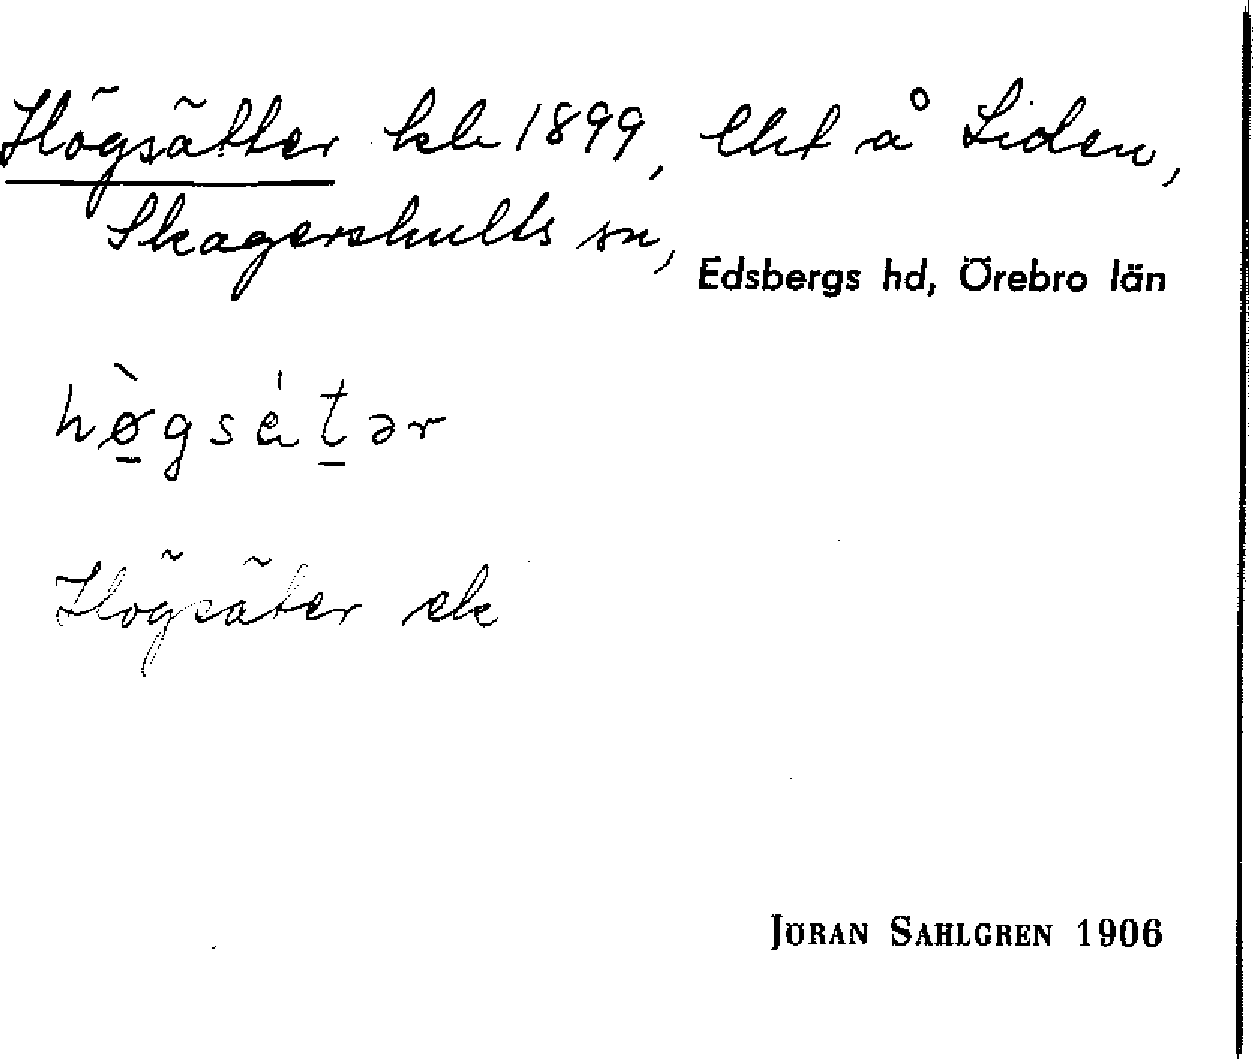 Högsätter kb 1899, lht å Liden,
Skagershults sn,
Edsbergs hd, Örebro län
hø̱̀gsǽṯər
Högsäter ek
JÖRAN SAHLGREN 1906